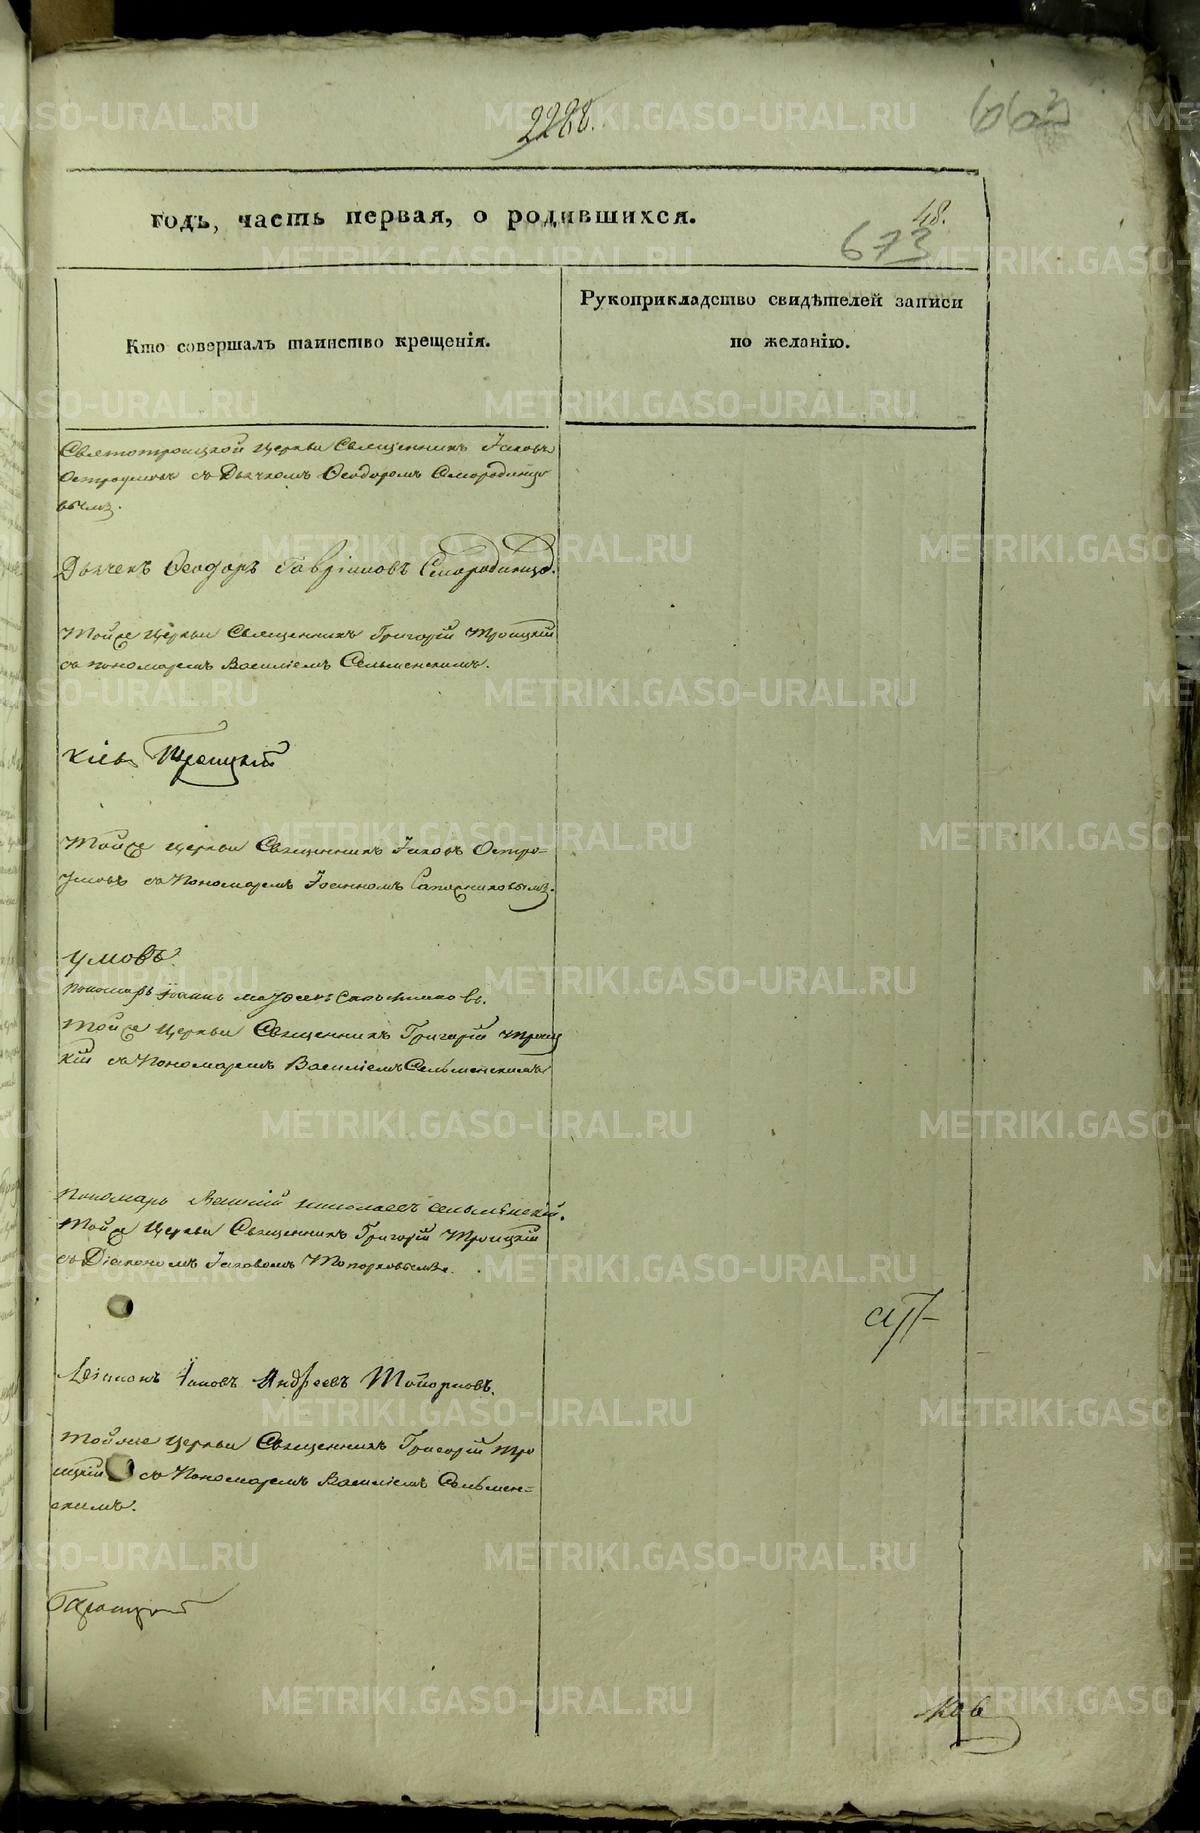 2288.
663
годъ, часть первая, о родившихся.
48.
673
Кто совершалъ таинство крещенія.
Рукоприкладство свидѣтелей записи
по желанію.
Святотроицкой Церкви Священникъ Іаковъ
Остроумовъ съ Дьячкомъ Ѳеодоромъ Смородинцо
вымъ.
Дьячекъ Ѳеодоръ Гавріиловъ Смородинцо.
Тойже Церкви Священникъ Григорій Троицкій
съ пономаремъ Василіемъ Сельменскимъ.
кіевъ Троицкій
Тойже Церкви Священникъ Іаковъ Остро-
умовъ съ Пономаремъ Іоанномъ Сапожниковымъ.
умовъ
Пономарь Іоаннъ Сапожниковъ.
Тойже Церкви Священникъ Григорій Троиц
кій съ Пономаремъ Василіемъ Сельменскимъ
Пономарь Василій Николаевъ Сельменскій.
Тойже Церкви Священникъ Григорій Троицкій
съ Діакономъ Іаковомъ Топорковымъ.
Діаконъ Іаковъ Андреевъ Топорковъ.
Тойже Церкви Священникъ Григорій Тро
ицкій съ Пономаремъ Василіемъ Сельмен-
скимъ.
Троицкій
ков
METRIKI.GASO-URAL.RU